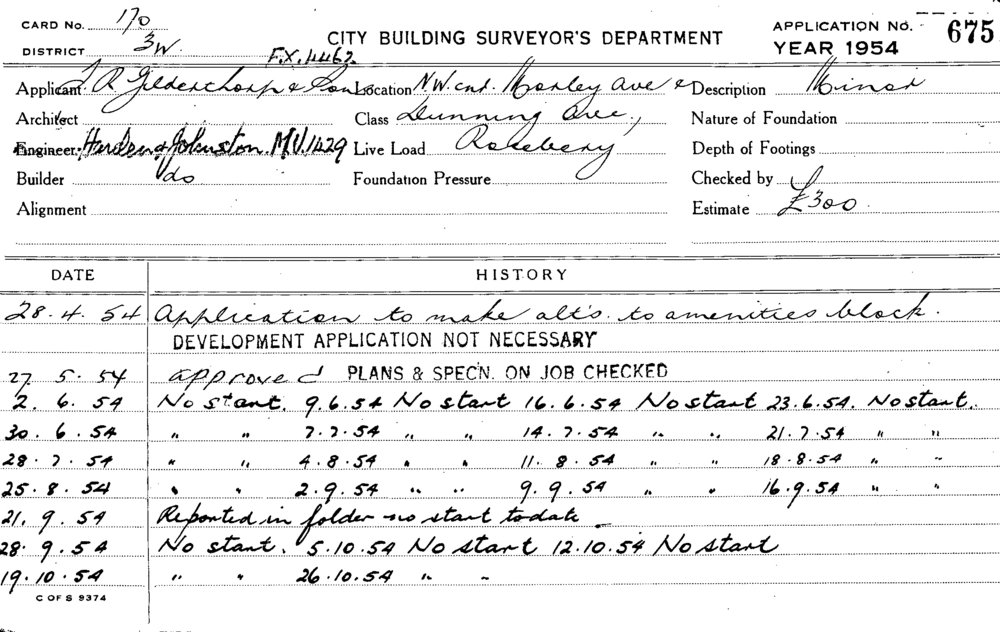 CARD No. 170
DISTRICT 3W
F.X. 4462
CITY BUILDING SURVEYOR'S DEPARTMENT
APPLICATION No. 675
YEAR 1954
Applicant R Gilderthorp & Sons Location N.W. cnr. Morley Ave & Description Minor
Architect Class Dunning Ave, Nature of Foundation
Engineer Harden & Johnston M.U.1429 Live Load Rosebery Depth of Footings
Builder do Foundation Pressure Checked by
Alignment Estimate £300
DATE HISTORY
28.4.54 Application to make alts. to amenities block.
DEVELOPMENT APPLICATION NOT NECESSARY
27 5.54 approved PLANS & SPEC'N. ON JOB CHECKED
2.6.54 No start. 9.6.54 No start 16.6.54 No start 23.6.54. No start.
30.6.54 " " 7.7.54 " " 14.7.54 " " 21.7.54 " "
28.7.54 " " 4.8.54 " " 11.8.54 " " 18.8.54 " "
25.8.54 " " 2.9.54 " " 9.9.54 " " 16.9.54 " "
21.9.54 Reported in folder no start to date
28.9.54 No start. 5.10.54 No start 12.10.54 No start
19.10.54 " " 26.10.54 " "
C OF S 9374